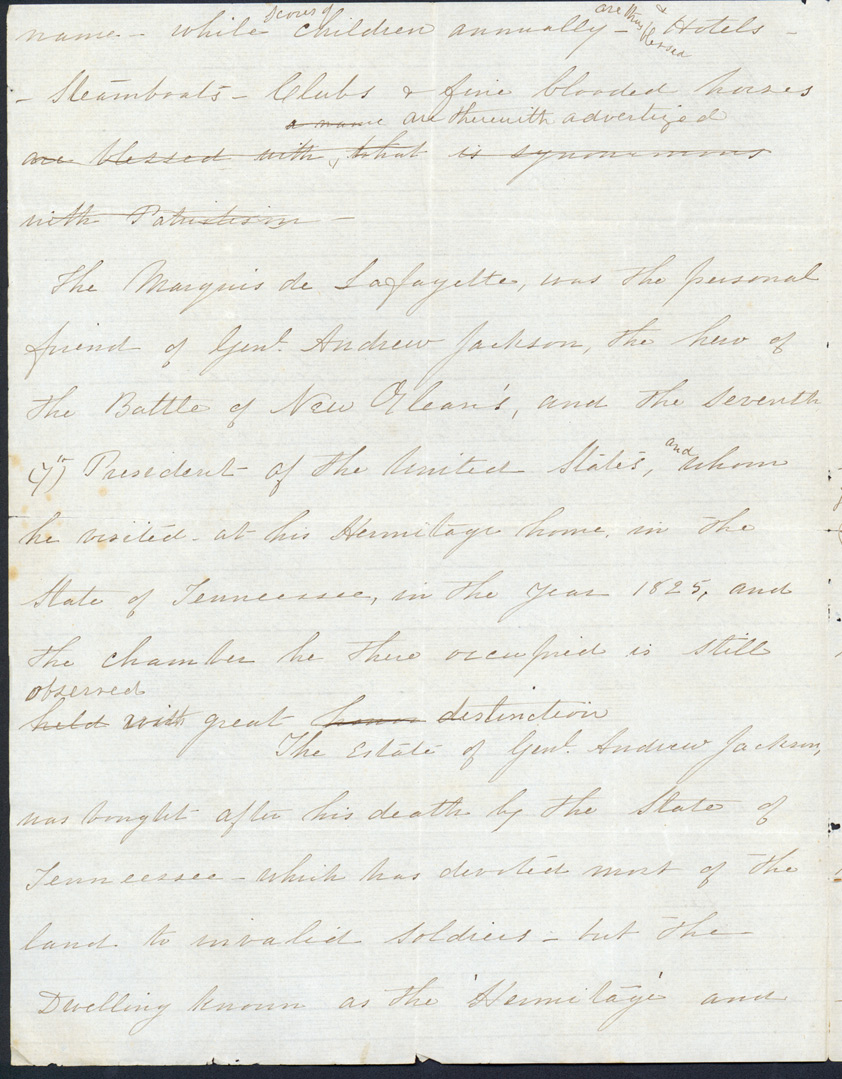 scores of are thus &
name - while children annually - blessed Hotels -
- Steamboats - Clubs & fine blooded horses
a name are therewith advertized
are blessed with, what is synonimous
with Patriotism -
The Marquis de Lafayette, was the personal
friend of Genl. Andrew Jackson, the hero of
the Battle of New Orlean's, and the seventh
(7th) President of the United States, and whom
he visited - at his Hermitage home, in the
State of Tenneessee, in the year 1825, and
the chamber he there occupied is still
observed
held with great honor distinction
The Estate of Genl. Andrew Jackson,
was bought after his death by the State of
Tenneessee - which has devoted most of the
land to invalid soldiers - but the
Dwelling known as the 'Hermitage' and